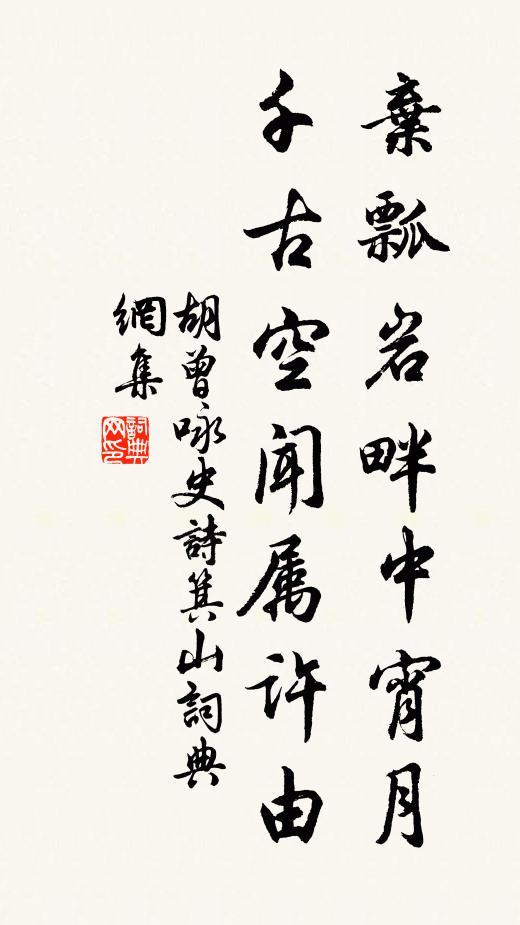 棄瓢岩畔中宵月
千古空聞属許由
胡曾咏史詩箕山詞典
網集
詞典網印